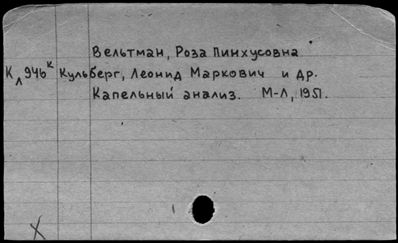 Вельтман, Роза Пинхусовна
Кл946к Кульберг, Леонид Маркович и др.
Капельный анализ. М-Л, 1951.